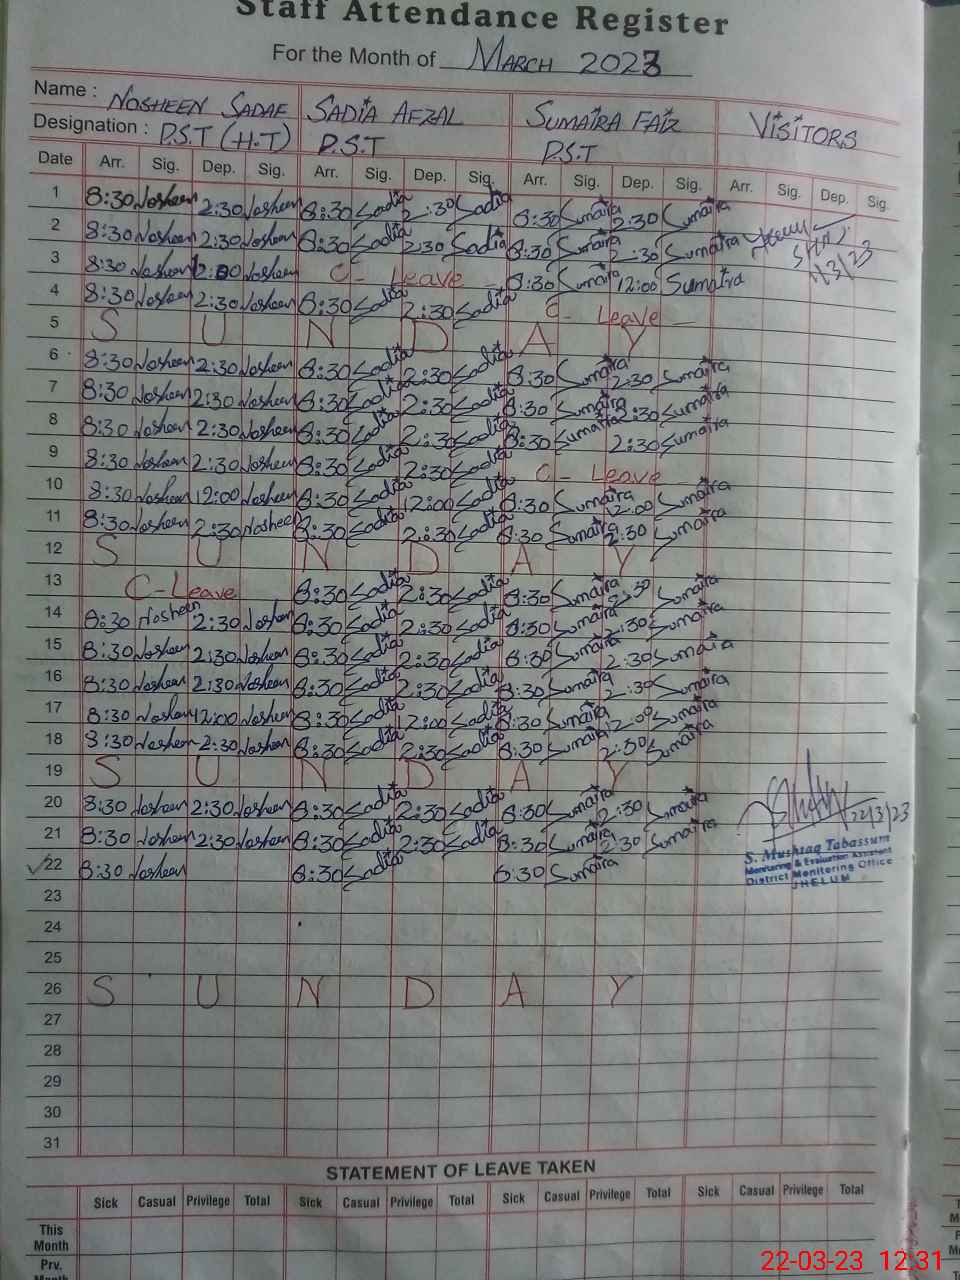 Staff Attendance Register
For the Month of MARCH 2023
Name : NOSHEEN SADAF SADIA AFZAL SUMAIRA FAIZ VISITORS
Designation : P.S.T (H.T) P.S.T P.S.T
Date Arr. Sig. Dep. Sig. Arr. Sig. Dep. Sig. Arr. Sig. Dep. Sig. Arr. Sig. Dep. Sig.
1 8:30 Nosheen 2:30 Nosheen 8:30 Sadia 2:30 Sadia 8:30 Sumaira 2:30 Sumaira
2 8:30 Nosheen 2:30 Nosheen 8:30 Sadia 2:30 Sadia 8:30 Sumaira 2:30 Sumaira
3 8:30 Nosheen 12:00 Nosheen C- Leave 8:30 Sumaira 12:00 Sumaira
4 8:30 Nosheen 2:30 Nosheen 8:30 Sadia 2:30 Sadia C- Leave
5 S U N D A Y
6 8:30 Nosheen 2:30 Nosheen 8:30 Sadia 2:30 Sadia 8:30 Sumaira 2:30 Sumaira
7 8:30 Nosheen 2:30 Nosheen 8:30 Sadia 2:30 Sadia 8:30 Sumaira 2:30 Sumaira
8 8:30 Nosheen 2:30 Nosheen 8:30 Sadia 2:30 Sadia 8:30 Sumaira 2:30 Sumaira
9 8:30 Nosheen 2:30 Nosheen 8:30 Sadia 2:30 Sadia C- Leave
10 8:30 Nosheen 12:00 Nosheen 8:30 Sadia 12:00 Sadia 8:30 Sumaira 12:00 Sumaira
11 8:30 Nosheen 2:30 Nosheen 8:30 Sadia 2:30 Sadia 8:30 Sumaira 2:30 Sumaira
12 S U N D A Y
13 C-Leave 8:30 Sadia 2:30 Sadia 8:30 Sumaira 2:30 Sumaira
14 8:30 Nosheen 2:30 Nosheen 8:30 Sadia 2:30 Sadia 8:30 Sumaira 2:30 Sumaira
15 8:30 Nosheen 2:30 Nosheen 8:30 Sadia 2:30 Sadia 8:30 Sumaira 2:30 Sumaira
16 8:30 Nosheen 2:30 Nosheen 8:30 Sadia 2:30 Sadia 8:30 Sumaira 2:30 Sumaira
17 8:30 Nosheen 12:00 Nosheen 8:30 Sadia 12:00 Sadia 8:30 Sumaira 12:00 Sumaira
18 8:30 Nosheen 2:30 Nosheen 8:30 Sadia 2:30 Sadia 8:30 Sumaira 2:30 Sumaira
19 S U N D A Y
20 8:30 Nosheen 2:30 Nosheen 8:30 Sadia 2:30 Sadia 8:30 Sumaira 2:30 Sumaira
21 8:30 Nosheen 2:30 Nosheen 8:30 Sadia 2:30 Sadia 8:30 Sumaira 2:30 Sumaira 22/3/23
22 8:30 Nosheen 8:30 Sadia 8:30 Sumaira
S. Mushtaq Tabassum
Monitoring & Evaluation Assistant
District Monitoring Office
JHELUM
23
24
25
26 S U N D A Y
27
28
29
30
31
STATEMENT OF LEAVE TAKEN
Sick Casual Privilege Total Sick Casual Privilege Total Sick Casual Privilege Total Sick Casual Privilege Total
This
Month
Prv.
Month
22-03-23 12:31